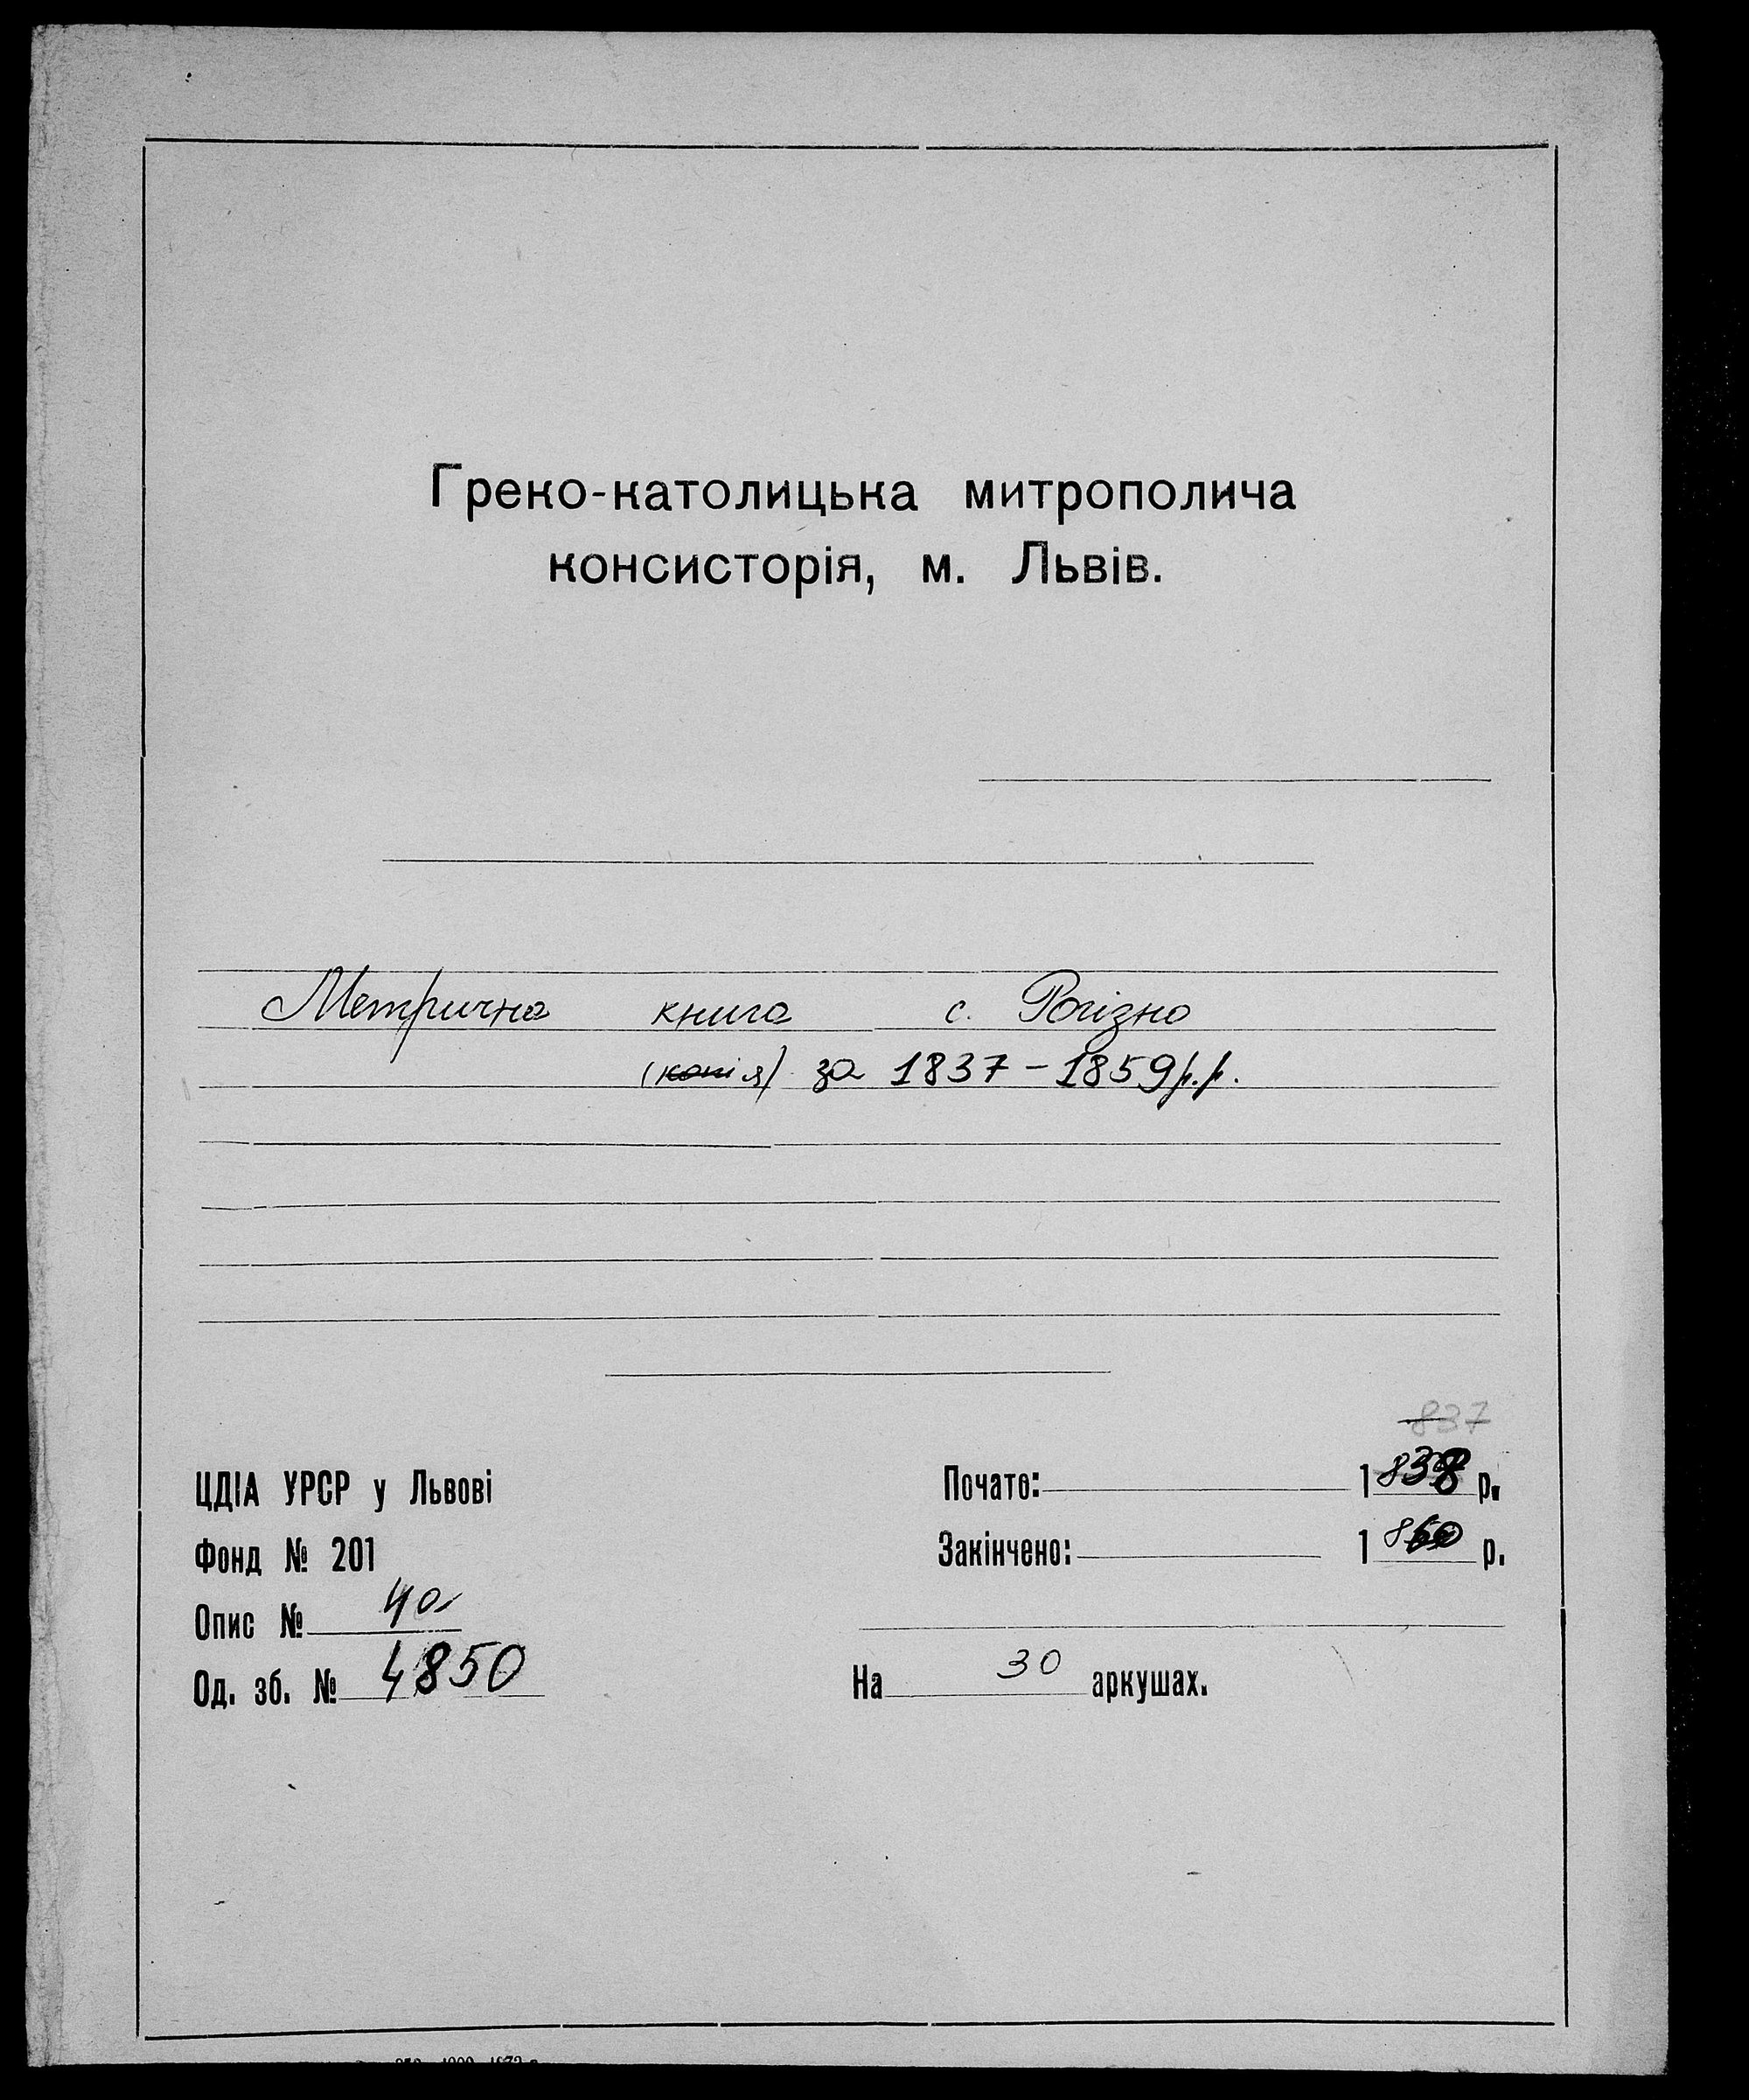 Греко-католицька митрополича
консисторія, м. Львів.
Метрична книга с. Рогізно
(копія) за 1837 - 1859 р.р.
837
ЦДІА УРСР у Львові
Почато: 1838 р.
Фонд № 201
Закінчено: 1860 р.
Опис № 4а
Од. зб. № 4850
На 30 аркушах.